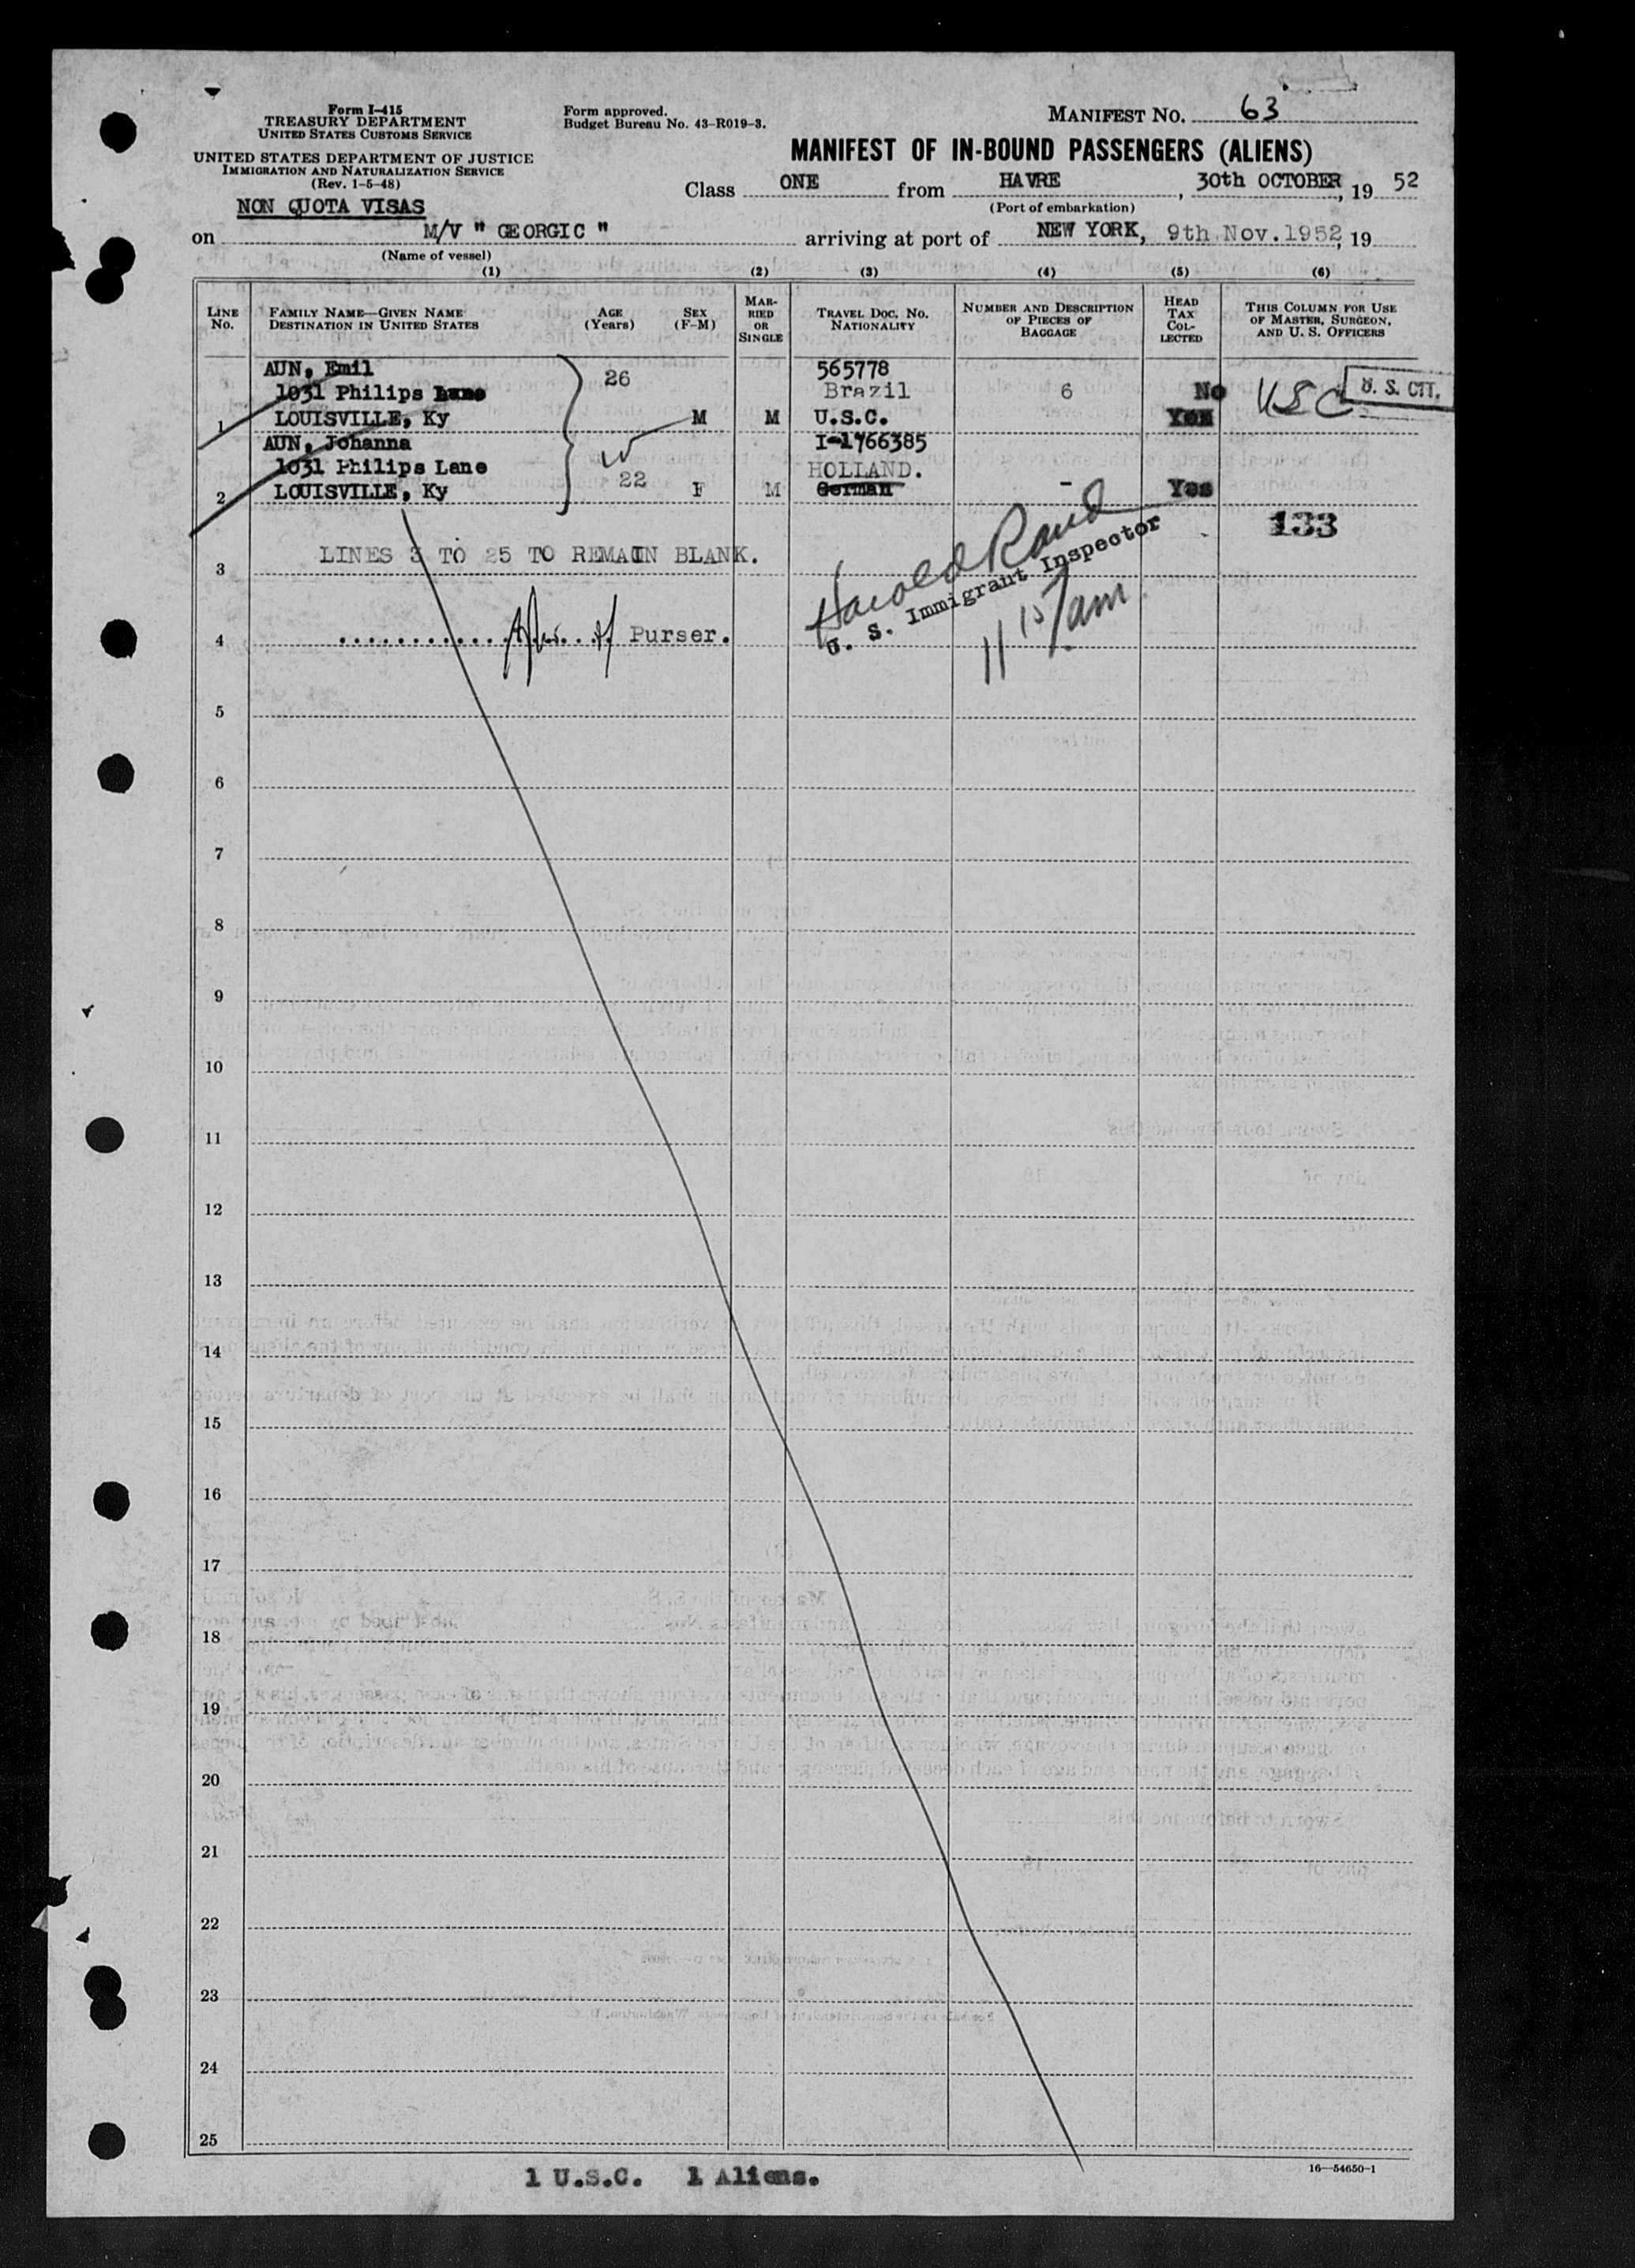 Form I-415
TREASURY DEPARTMENT
UNITED STATES CUSTOMS SERVICE
UNITED STATES DEPARTMENT OF JUSTICE
IMMIGRATION AND NATURALIZATION SERVICE
(Rev. 1-5-48)
Form approved.
Budget Bureau No. 43-R019-3.
MANIFEST NO. 63
MANIFEST OF IN-BOUND PASSENGERS (ALIENS)
Class ONE from HAVRE, 30th OCTOBER, 19 52
(Port of embarkation)
NON QUOTA VISAS
on M/V " GEORGIC " arriving at port of NEW YORK, 9th Nov.1952, 19
(Name of vessel)
(1) (2) (3) (4) (5) (6)
LINE No.
FAMILY NAME—GIVEN NAME
DESTINATION IN UNITED STATES
AGE (Years)
SEX (F-M)
MARRIED OR SINGLE
TRAVEL DOC. NO.
NATIONALITY
NUMBER AND DESCRIPTION OF PIECES OF BAGGAGE
HEAD TAX COLLECTED
THIS COLUMN FOR USE OF MASTER, SURGEON, AND U. S. OFFICERS
AUN, Emil 565778
1031 Philips Lane 26 Brazil 6 No USC U. S. CIT.
1 LOUISVILLE, Ky M M U.S.C. Yes
AUN, Johanna I-1766385
1031 Philips Lane HOLLAND.
2 LOUISVILLE, Ky 22 F M German - Yes
133
LINES 3 TO 25 TO REMAIN BLANK.
3
Harold Rand
U. S. Immigrant Inspector
11 15/am
4 Purser.
5
6
7
8
9
10
11
12
13
14
15
16
17
18
19
20
21
22
23
24
25
1 U.S.C. 1 Aliens.
16—54650-1